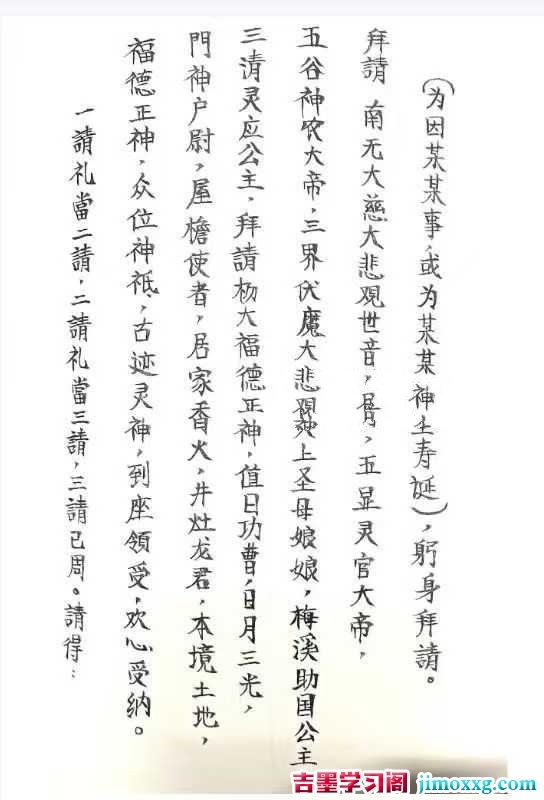 (为因某某事，或为某某神圣寿诞)，躬身拜請。
拜請 南无大慈大悲观世音，五显灵官大帝，
五谷神农大帝，三界伏魔大悲上圣母娘娘，梅溪助国公主
三清灵应公主，拜請杨大福德正神，值日功曹，日月三光，
門神户尉，屋檐使者，居家香火，井灶龙君，本境土地，
福德正神，众位神祗，古迹灵神，到座領受，欢心受纳。
一請礼當二請，二請礼當三請，三請已周。請得：
吉墨学习阁 jimoxxg.com